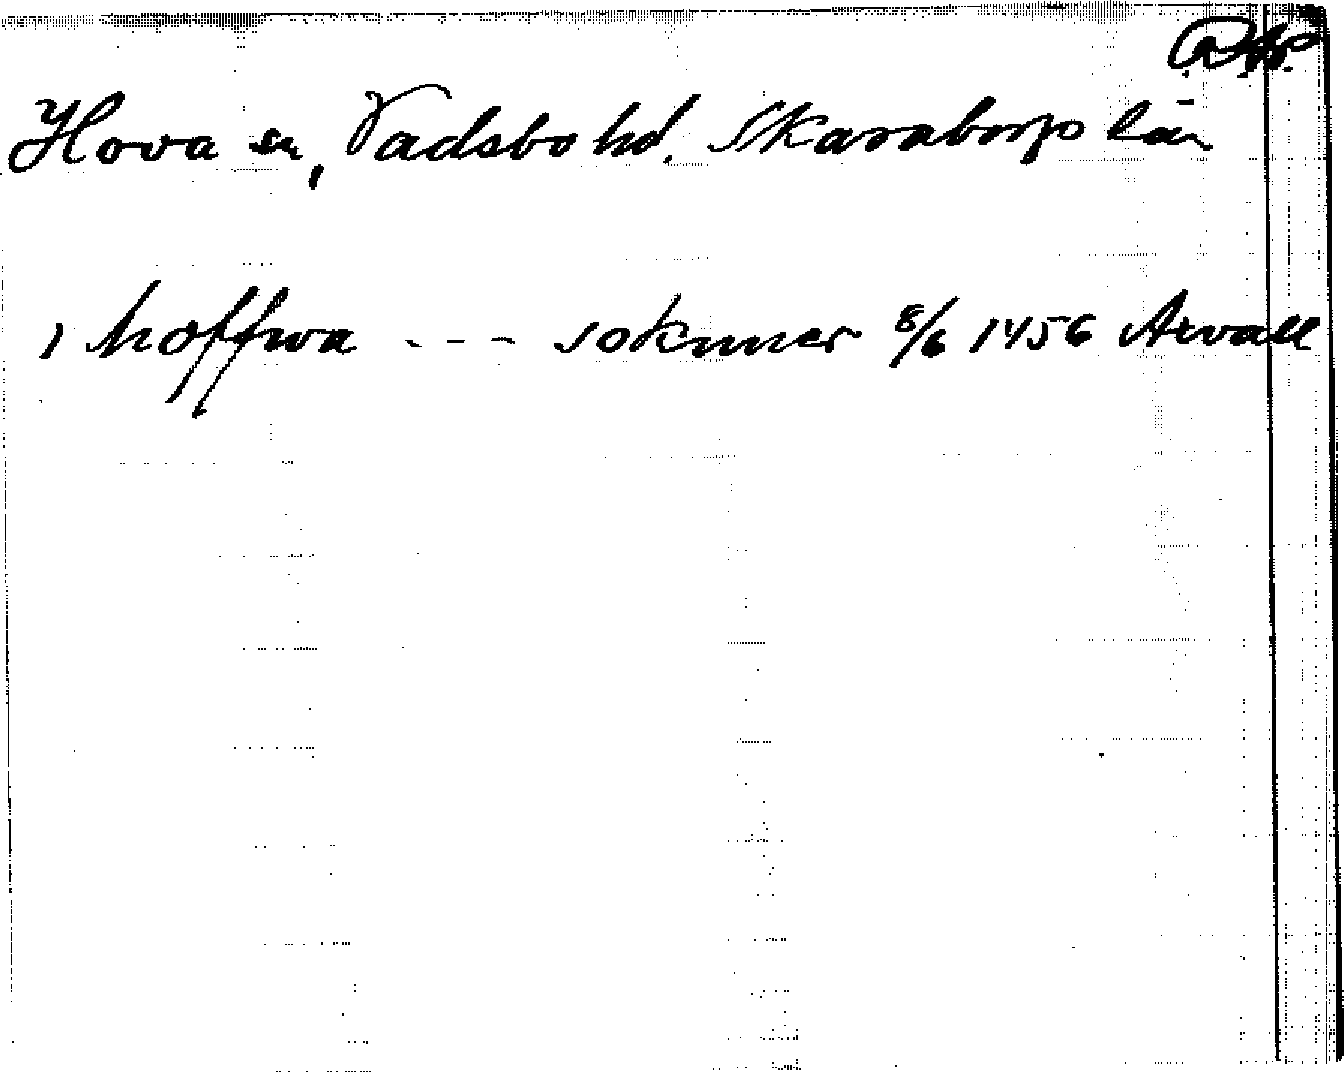 Hova sn, Vadsbo hd. Skaraborgs län
j hoffwa --- soknner 8/6 1456 Arvall